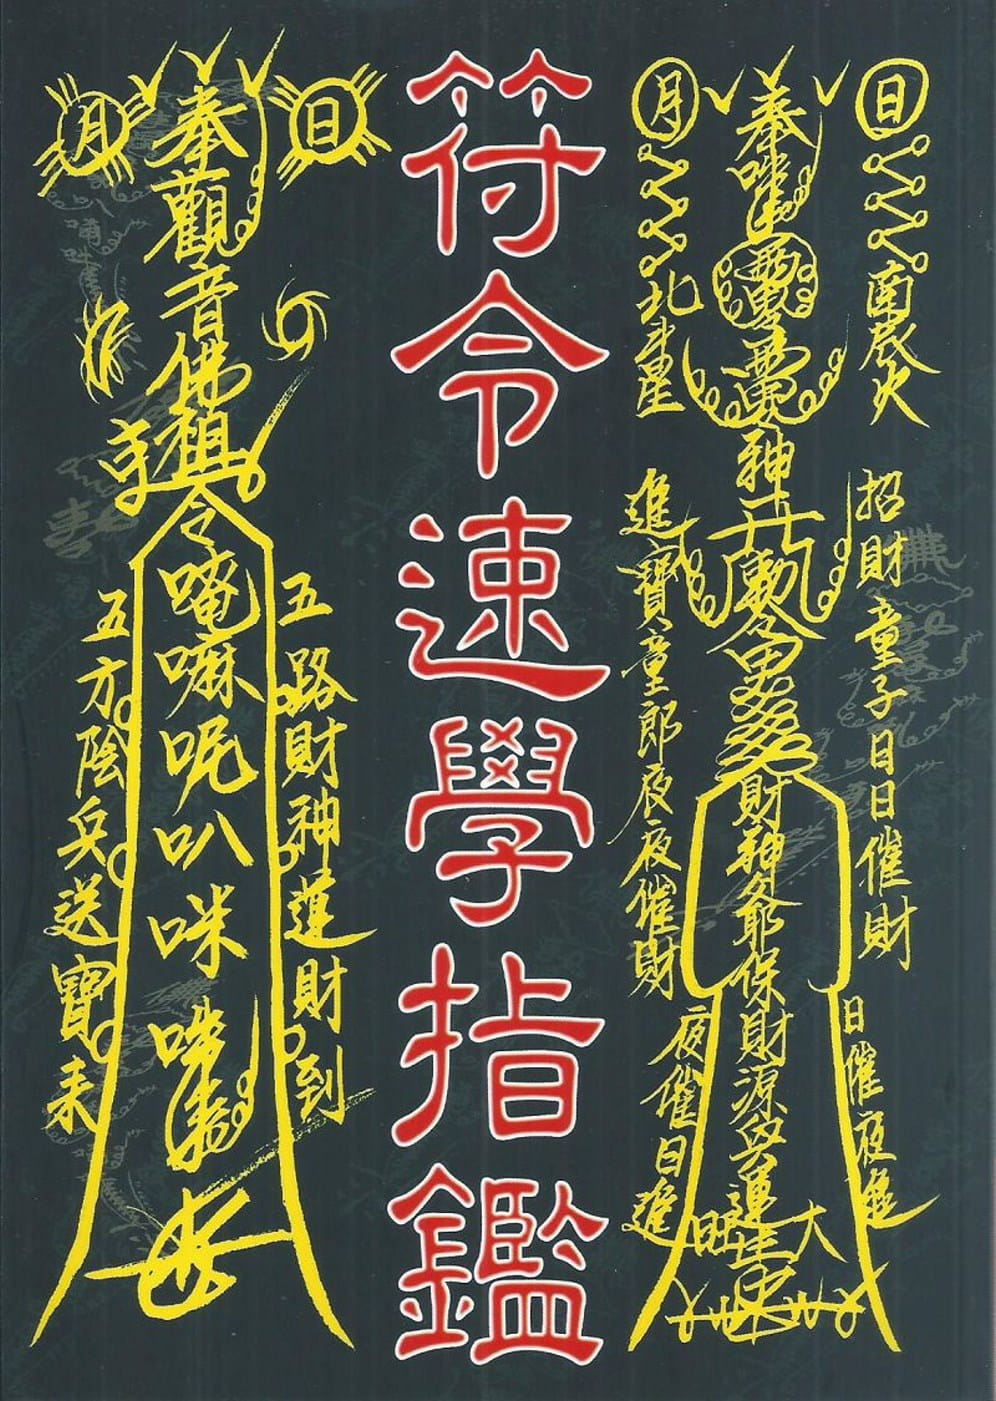 日
奉
月
南辰火
北斗星
神
招財童子日日催財
進寶童郎夜夜催財
財神爺爺保財源興運
日催夜進
夜催日進
大旺
符令速學指鑑
日
奉觀音佛祖
月
令唵嘛呢叭咪
五路財神運財到
五方陰兵送寶來